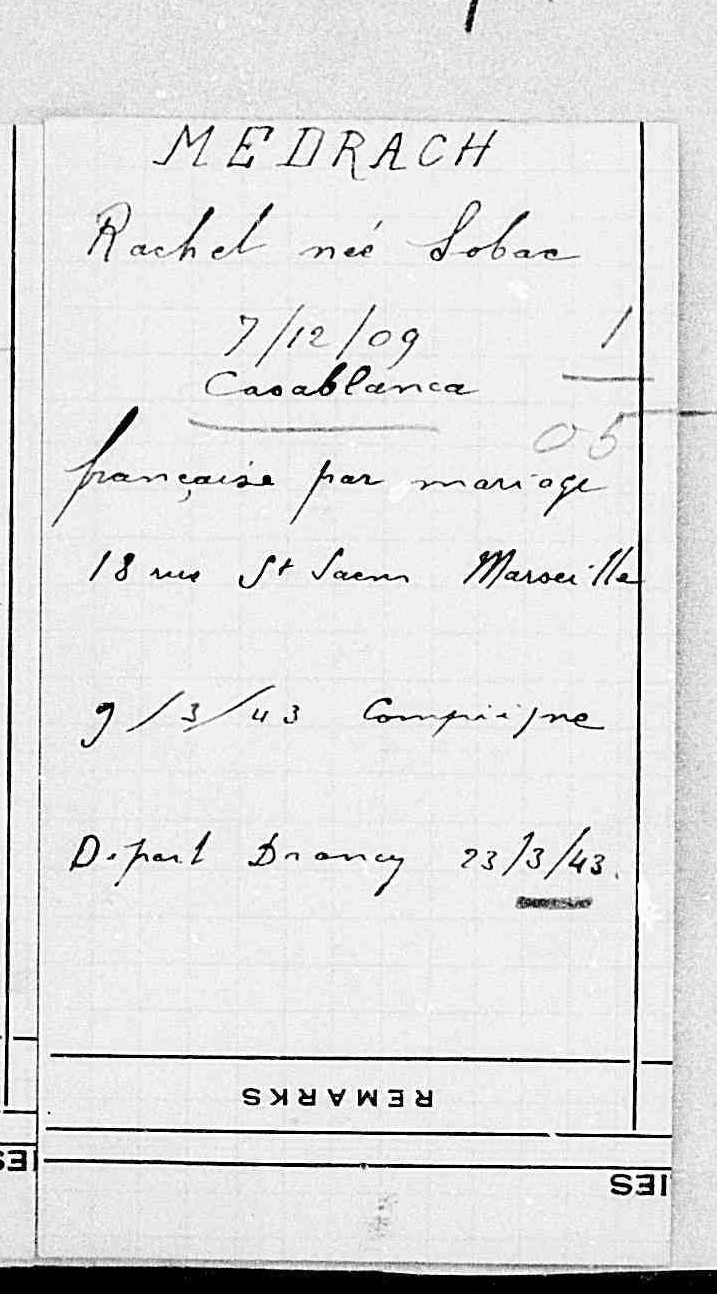 MEDRACH
Rachel née Sobac
7/12/09
1
Casablanca
05
française par mariage
18 rue St Saens Marseille
9/3/43 Compiègne
Départ Drancy 23/3/43.
REMARKS
IES
IES